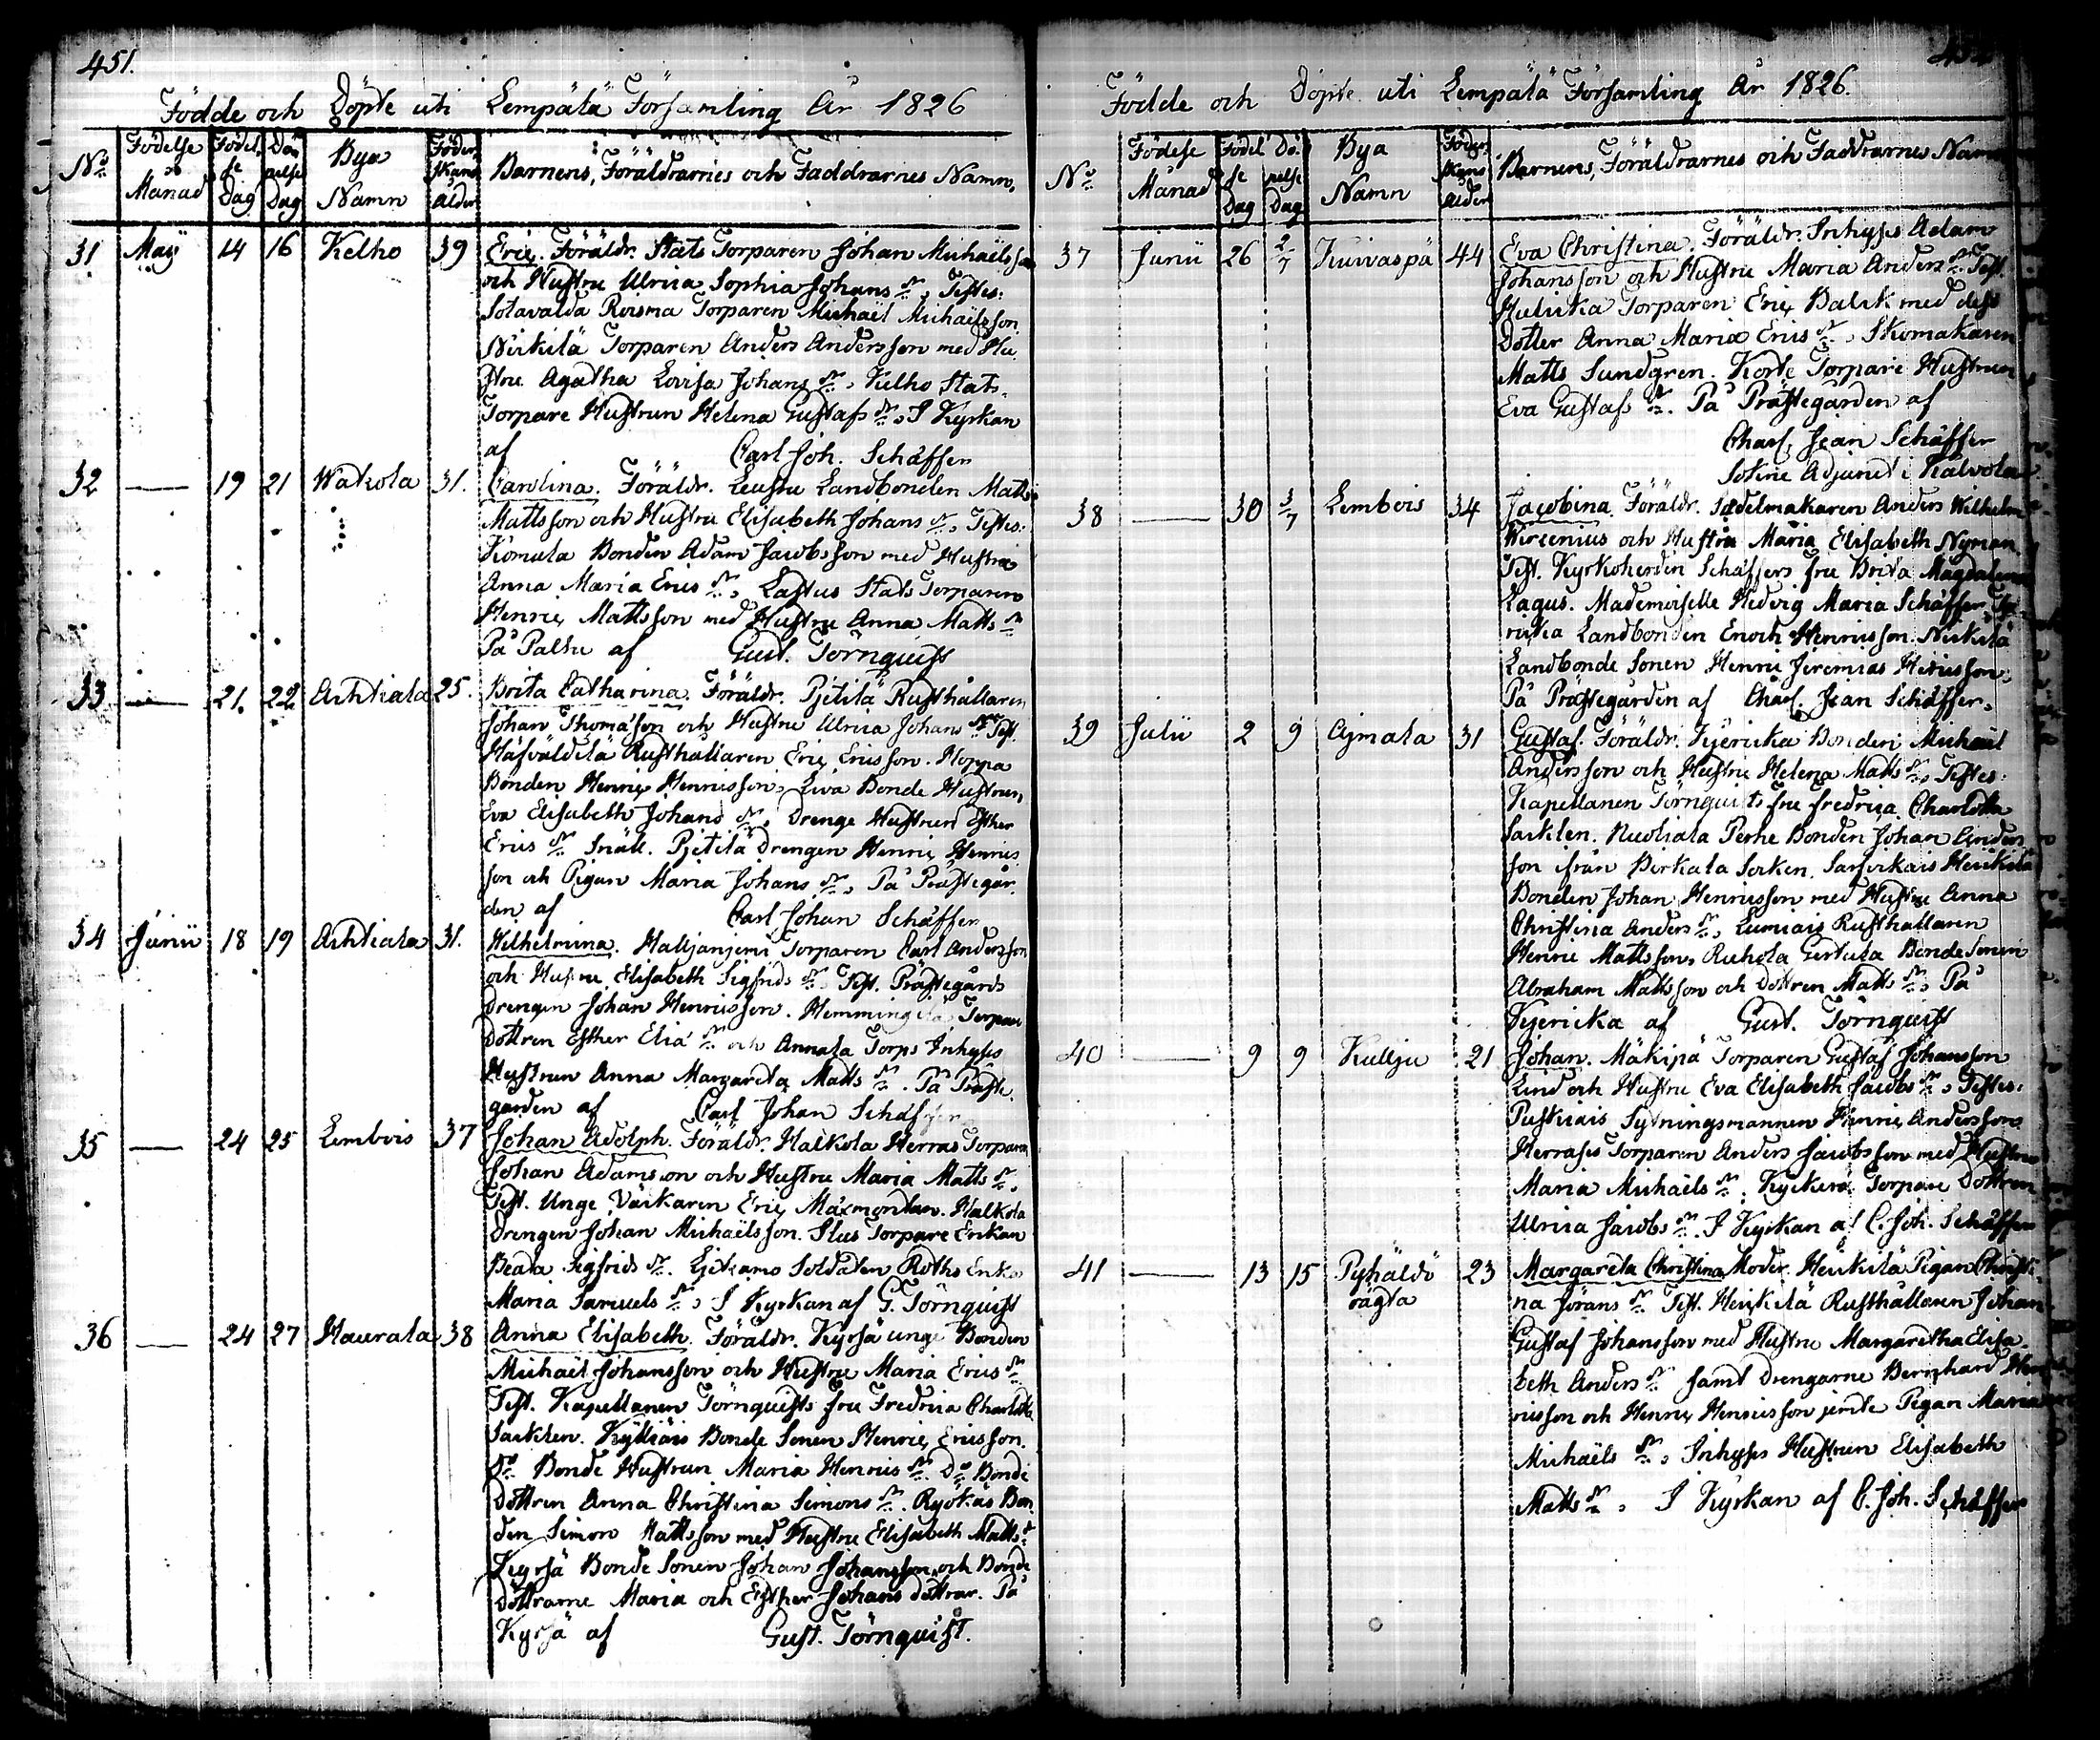 451.
Födde och Döpte uti Lempälä Församling År 1826
No Födelse Månad Födelse Dag Döpelse Dag Bya Namn Föderskans ålder Barnens, Föräldrarnes och Faddrarnes Namn.
31 Maij 14 16 Kelho 39 Eric. Föräldr. Stats Torparen Johan Michaëlsson
och Hustru Ulrica Sophia Johans dr, Testes:
Sotavalda Torparen Michaël Michaëlsson
Torparen Anders Andersson med Hu
stru Agatha Lovisa Johans dr, Kelho Stats
Torpare Hustrun Helena Gustafs dr, I Kyrkan
af Carl Joh. Schäffer
32 — 19 21 Wakola 31. Carolina. Föräldr. Landbonden Matts
Mattsson och Hustru Elisabeth Johans dr, Testes:
Bonden Adam Jacobsson med Hustru
Anna Maria Erics dr, Lastus Stats Torparen
Henric Mattsson med Hustru Anna Matts dr
På af Gust. Törnquist
33 — 21. 22 Ahtiala 25. Brita Catharina. Föräldr. Pjetilä Rusthållaren
Johan Thomasson och Hustru Ulrica Johans dr Test.
Rusthållaren Eric Ericsson. Hoppa
Bonden Henric Henricsson, Bonde Hustrun
Eva Elisabeth Johans dr, Drenge Hustrun Esther
Erics dr Snäll. Pjetilä Drengen Henric Henrics
son och Pigan Maria Johans dr, På Prästegår
den af Carl Johan Schäffer
34 Junii 18 19 Ahtiala 31. Wilhelmina. Torparen Carl Andersson
och Hustru Elisabeth Sigfrids dr, Test. Prästegårds
Drengen Johan Henricsson. Torpare
Dottren Esther Elia dr och Annala Torps Inhyses
Hustrun Anna Margareta Matts dr. På Präste
gården af Carl Johan Schäffer
35 — 24 25 Lembois 37 Johan Adolph. Föräldr. Halkola Herras Torparen
Johan Adamsson och Hustru Maria Matts dr.
Test. Unge Eric Halkola
Drengen Johan Michaëlsson. Torpare Enkan
Beata Sigfrids dr. Soldaten Roths Enka
Maria Samuels dr, I Kyrkan af G. Törnquist
36 — 24 27 Haurala 38 Anna Elisabeth. Föräldr. Kyrsä unge Bonden
Michaël Johansson och Hustru Maria Erics dr
Test. Kapellanen Törnquists fru Fredrica Charlotta
Sacklen. Bonde Sonen Henric Ericsson.
Do Bonde Hustrun Maria Henrics dr. Do Bonde
Dottren Anna Christina Simons dr. Bon
den Simon Mattsson med Hustru Elisabeth Matts dr
Kyrsä Bonde Sonen Johan Johansson, och Bonde
Döttrarne Maria och Esther Johans döttrar. På
Kyrsä af Gust. Törnquist.
Födde och Döpte uti Lempälä Församling År 1826.
No Födelse Månad Födelse Dag Döpelse Dag Bya Namn Föderskans ålder Barnens, Föräldrarnes och Faddrarnes Namn
37 Junii 26 2/7 Kuivaspä 44 Eva Christina. Föräldr. Inhyses Adam
Johansson och Hustru Maria Anders dr Test.
Torparen Eric med dess
Dotter Anna Maria Erics dr, Skomakaren
Matts Sundgren. Torpare Hustrun
Eva Gustafs dr. På Prästegården af
Charl. Jean Schäffer
Adjunct i Kalvola
38 — 30 3/7 Lembois 34 Jacobina. Föräldr. Sadelmakaren Anders Wilhelm
och Hustru Maria Elisabeth Nyman.
Test. Kyrkoherden Schäffers fru Brita Magdalena
Lagus. Mademoiselle Hedvig Maria Schäffer,
Landbonden Enoch Henricsson.
Landbonde Sonen Henric Jeremias Henricsson,
På Prästegården af Charl. Jean Schäffer.
39 Julii 2 9 Ajmala 31 Gustaf. Föräldr. Bonden Michaël
Andersson och Hustru Helena Matts dr, Testes:
Kapellanen Törnquists fru Fredrica Charlotta
Sacklen. Bonden Johan Anders
son ifrån Birkala Socken.
Bonden Johan Henricsson med Hustru Anna
Christina Anders dr, Rusthållaren
Henric Mattsson, Bonde Sonen
Abraham Mattsson och Dottren Matts dr, På
af Gust. Törnquist
40 — 9 9 Kulju 21 Johan. Mäkipä Torparen Gustaf Johansson
Lind och Hustru Eva Elisabeth Jacobs dr, Testes:
Sytningsmannen Henric Andersson
Torparen Anders Jacobsson med Hustru
Maria Michaëls dr. Torpare Dottren
Ulrica Jacobs dr. I Kyrkan af C. Joh. Schäffer
41 — 13 15 Pyhäldö rågta 23 Margareta Christina Moder. Heikilä Pigan Christi
na Jörans dr Test. Heikilä Rusthållaren Johan
Gustaf Johansson med Hustru Margaretha Elisa
beth Anders dr samt Drengarne Bernhard Hen
ricsson och Henric Henricsson jemte Pigan Maria
Michaëls dr, Inhyses Hustrun Elisabeth
Matts dr, I Kyrkan af C. Joh. Schäffer